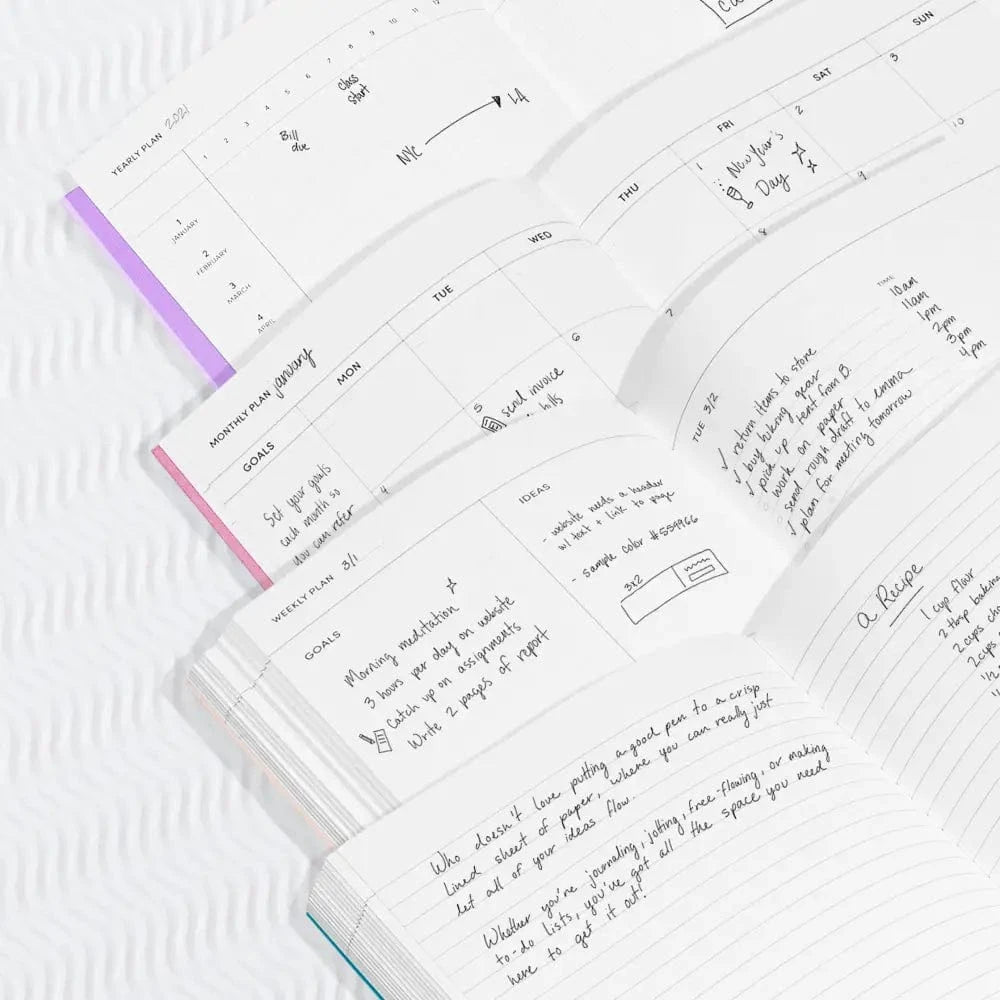 YEARLY PLAN 2021
1 2 3 4 5 6 7 8 9 10 11 12
1
JANUARY
2
FEBRUARY
3
MARCH
4
Bill
due
Class
start
NYC
LA
MONTHLY PLAN january
GOALS
MON
TUE
WED
THU
FRI
SAT
SUN
Set your goals
each month so
you can refer
4
5
send invoice
bills
6
7
1
New Year's
Day
2
3
8
9
10
WEEKLY PLAN 3/1
GOALS
Morning meditation
3 hours per day on website
Catch up on assignments
Write 2 pages of report
IDEAS
- website needs a header
w/ text + link to page
- sample color #559966
3x2
TUE 3/2
TIME
return items to store
buy hiking gear
pick up tent from B.
work on paper
send rough draft to emma
plan for meeting tomorrow
10am
11am
1pm
2pm
3pm
4pm
Who doesn't love putting a good pen to a crisp
lined sheet of paper, where you can really just
let all of your ideas flow.
Whether you're journaling, jotting, free-flowing, or making
to-do lists, you've got all the space you need
here to get it out!
a Recipe
1 cup flour
2 tbsp baking
2 cups
2 cups